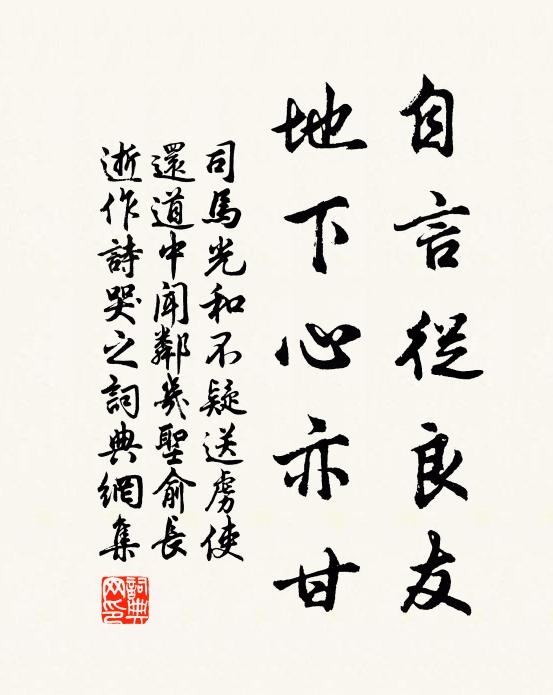 自言從良友
地下心亦甘
司馬光和不疑送虜使
還道中聞鄰幾聖俞長
逝作詩哭之詞典網集
詞典網印